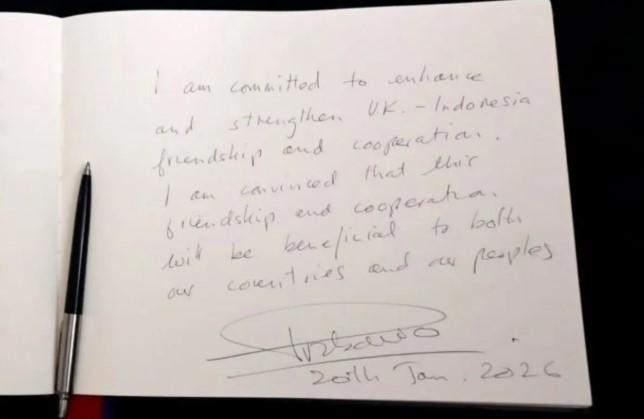 I am committed to enhance
and strengthen U.K. - Indonesia
friendship and cooperation.
I am convinced that this
friendship and cooperation
will be beneficial to both
our countries and our peoples
20th Jan. 2026